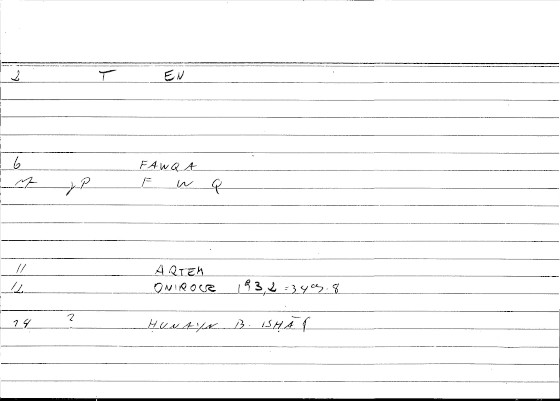 2 T EN
6 FAWQA
F W Q
11 ARTEM
12 ONIROCR 193,2 =349.8
14 ? HUNAYN B. ISHĀQ